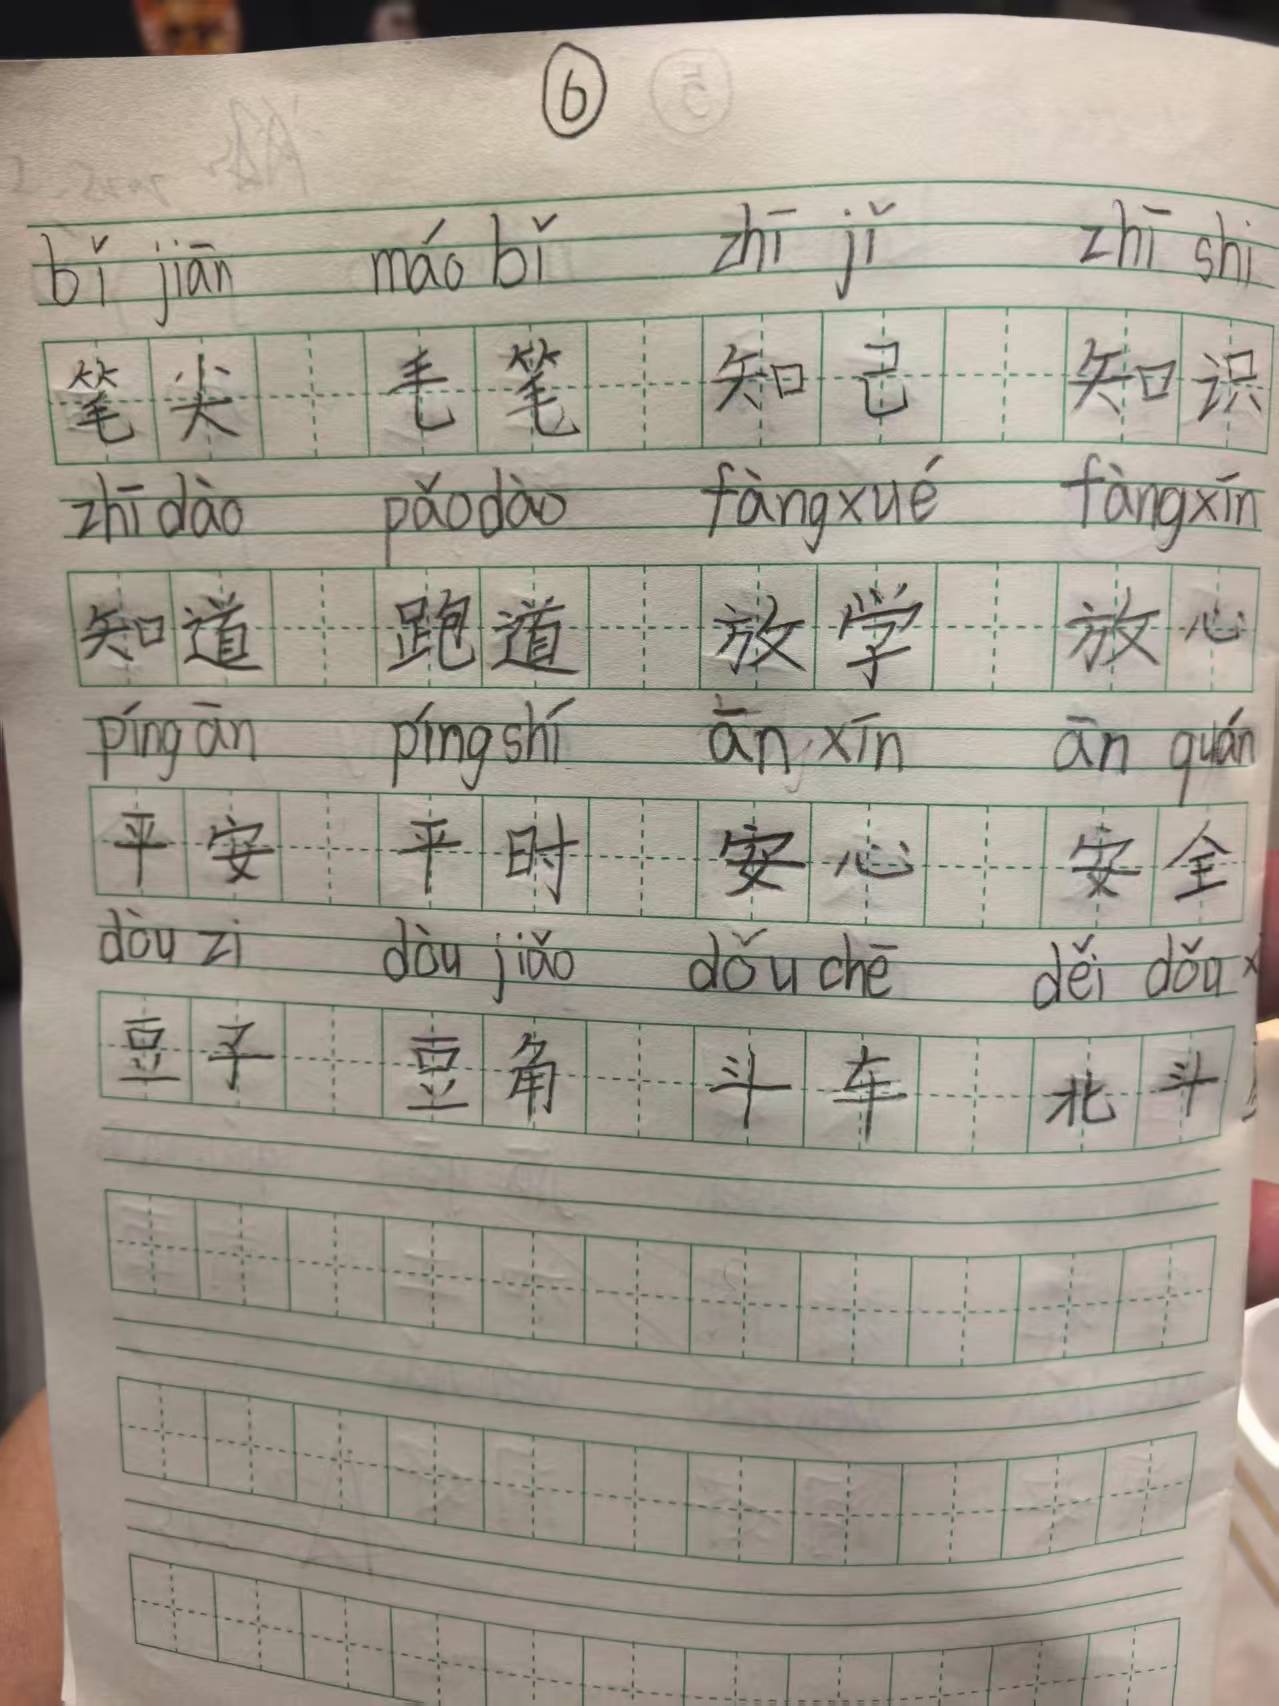 6
bǐ jiān máo bǐ zhī jǐ zhī shi
笔尖 毛笔 知己 知识
zhī dào pǎodào fàngxué fàngxīn
知道 跑道 放学 放心
píng ān píng shí ān xīn ān quán
平安 平时 安心 安全
dòu zi dòu jiǎo dǒu chē děi dǒu
豆子 豆角 斗车 北斗